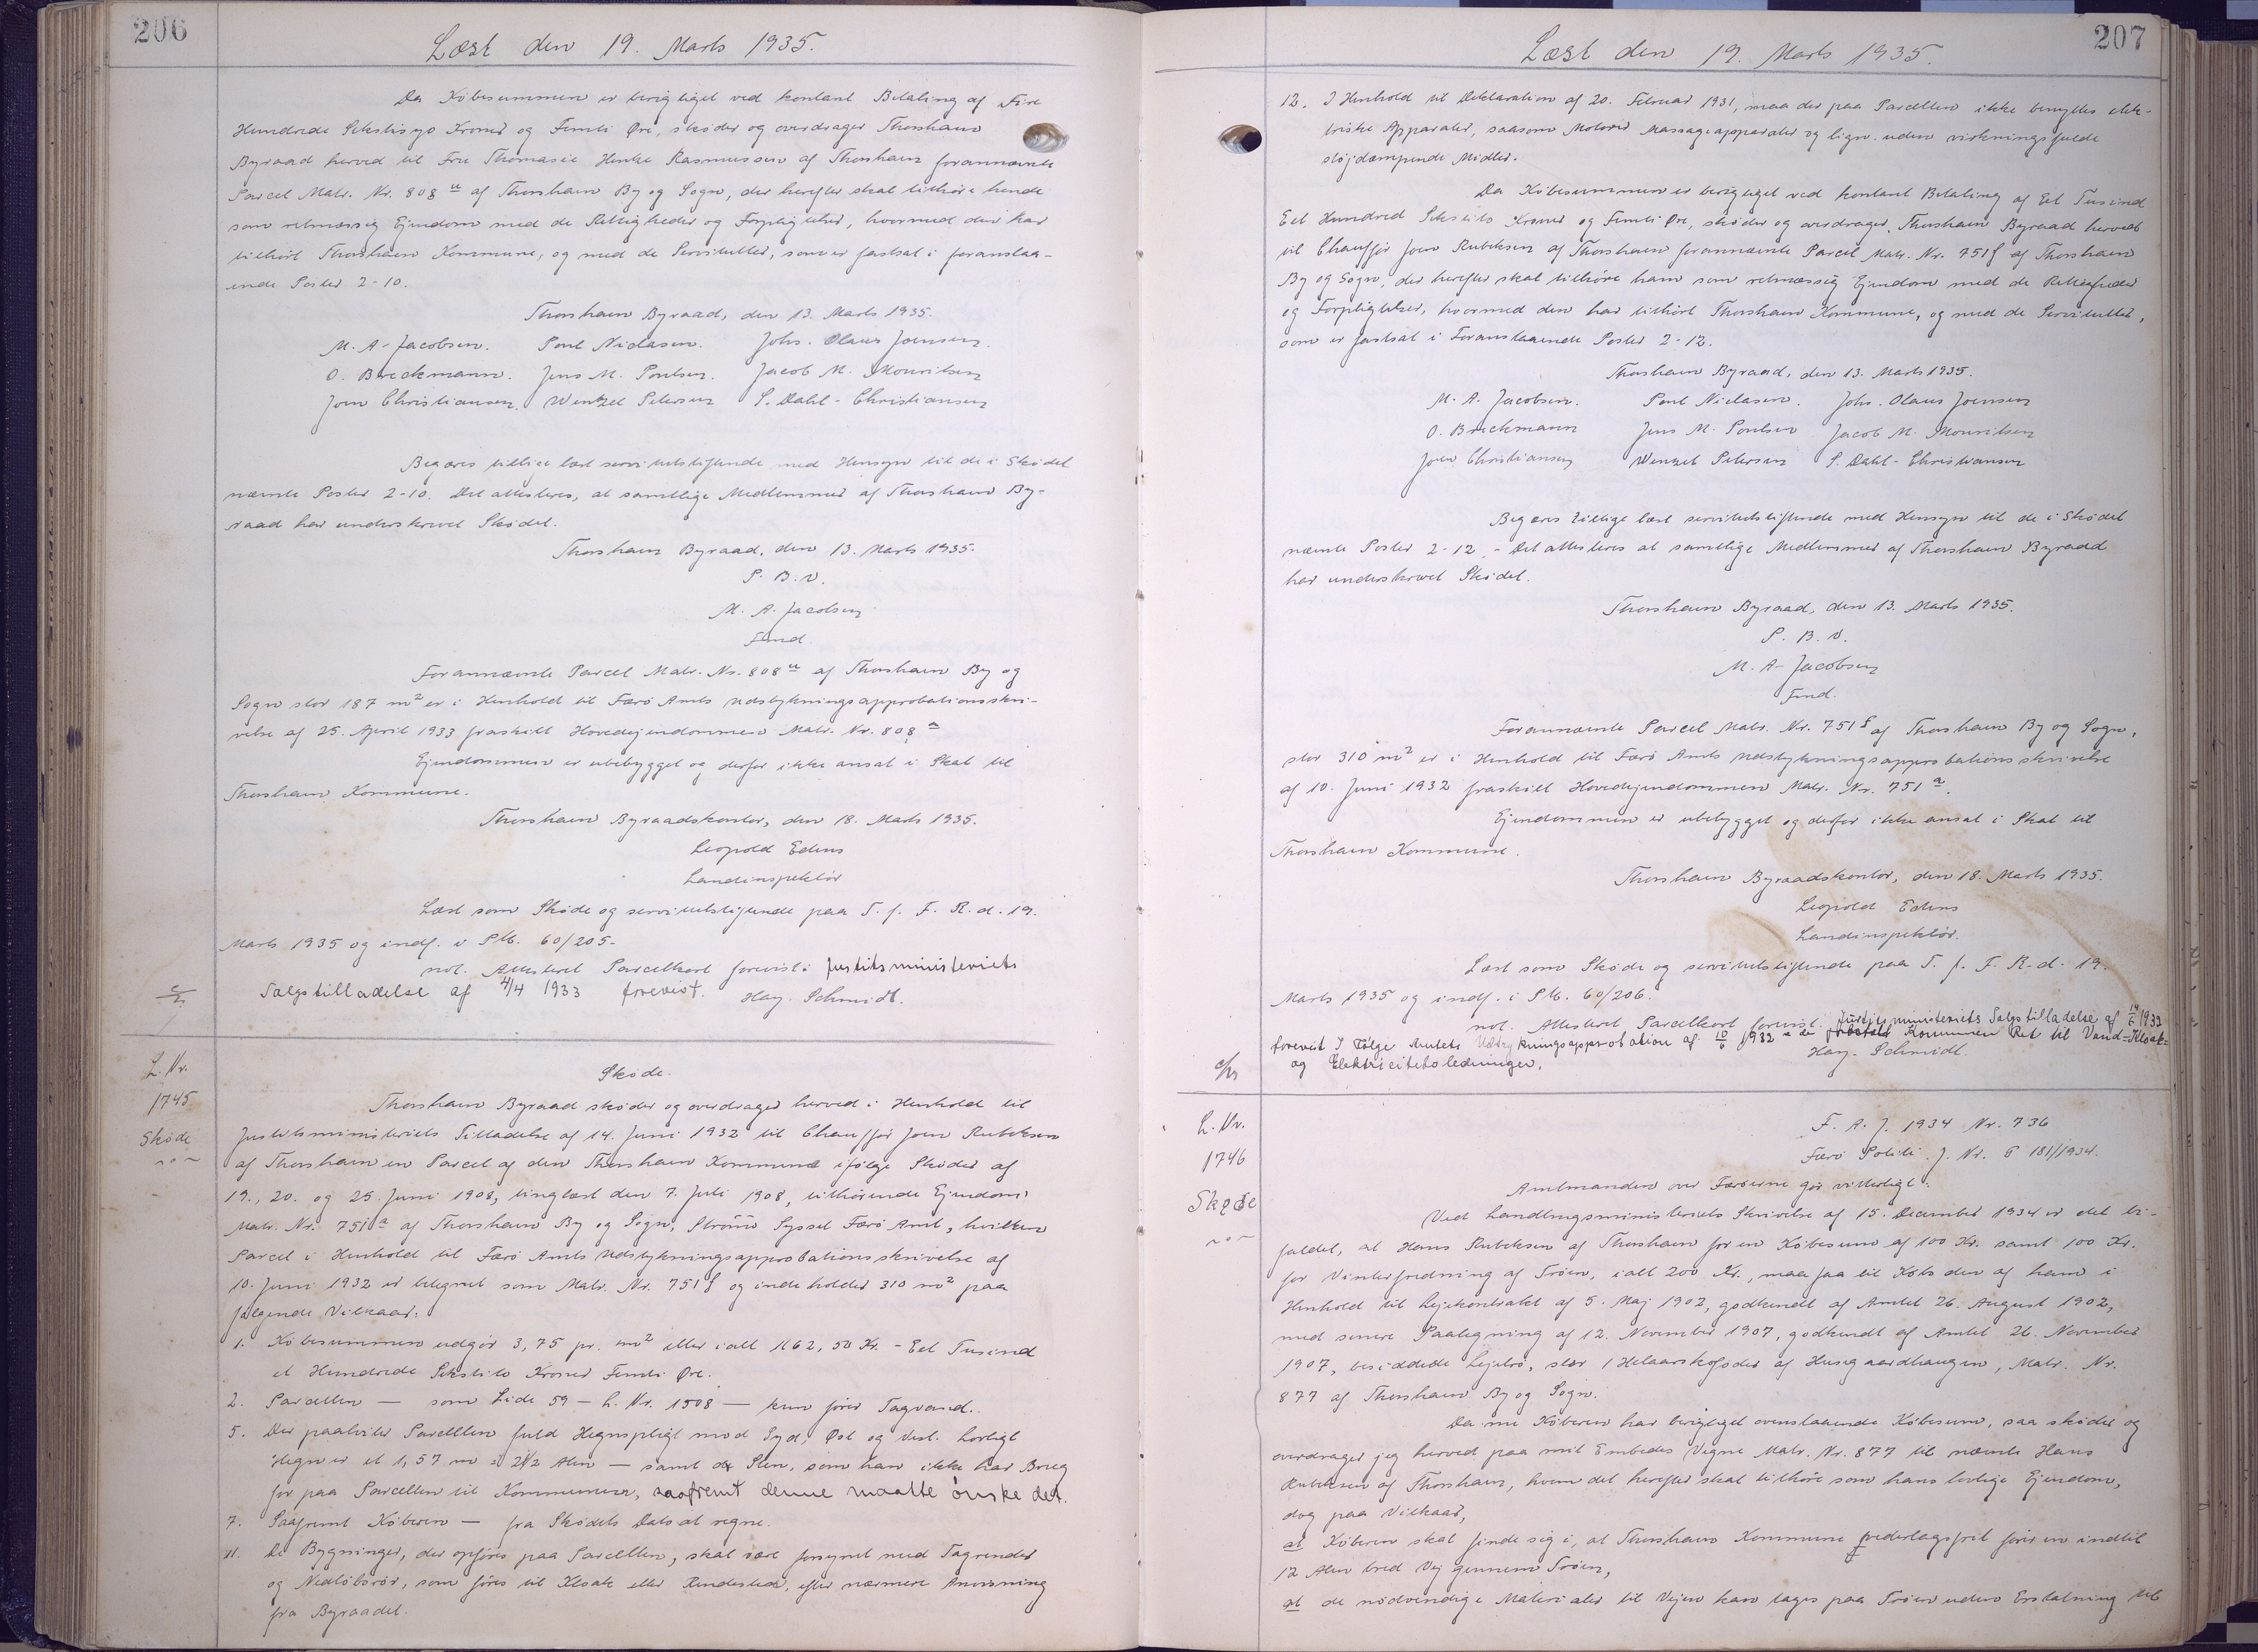 206
Læst den 19. Marts 1935.
Da Købesummen er berigtiget ved kontant Betaling af Fire
Hundrede Sekstisyv Kroner og Femti Øre, skøder og overdrager Thorshavn
Byraad herved til Fru Thomasie Henke Rasmussen af Thorshavn forannævnte
Parcel Matr. Nr. 808 u af Thorshavn By og Sogn, der herefter skal tilhøre hende
som retmæssig Ejendom med de Rettigheder og Forpligtelser, hvormed den har
tilhørt Thorshavn Kommune, og med de Servitutter, som er fastsat i foranstaa-
ende Poster 2-10.
Thorshavn Byraad, den 13. Marts 1935.
M. A. Jacobsen. Poul Niclasen. Johs. Olaus Joensen.
O. Breckmann. Jens M. Poulsen. Jacob M. Mouritsen
Joen Christiansen. Wentzel Petersen S. Dahl-Christiansen
Begæres tillige læst servitutstiftende med Hensyn til de i Skødet
nævnte Poster 2-10. Det attesteres, at samtlige Medlemmer af Thorshavn By-
raad har underskrevet Skødet.
Thorshavn Byraad, den 13. Marts 1935.
P. B. V.
M. A. Jacobsen
Fmd.
Forannævnte Parcel Matr. Nr. 808 u af Thorshavn By og
Sogn stor 187 m² er i Henhold til Færø Amts Udstykningsapprobationsskri-
velse af 25. April 1933 fraskilt Hovedejendommen Matr. Nr. 808 a
Ejendommen er ubebygget og derfor ikke ansat i Skat til
Thorshavn Kommune.
Thorshavn Byraadskontor, den 18. Marts 1935.
Leopold Edens
Landinspektør
Læst som Skøde og servitutstiftende paa T. f. F. R. d. 19.
Marts 1935 og indf. i Pk. 60/205.
not. Attesteret Parcelkort forevist. Justitsministeriets
Salgstilladelse af 4/4 1933 forevist. Hay. Schmidt.
L. Nr.
1745
Skøde
Skøde.
Thorshavn Byraad skøder og overdrager herved i Henhold til
Justitsministeriets Tilladelse af 14. Juni 1932 til Chauffør Joen Rubeksen
af Thorshavn en Parcel af den Thorshavn Kommune ifølge Skøder af
19., 20. og 25. Juni 1908, tinglæst den 7. Juli 1908, tilhørende Ejendom
Matr. Nr. 751 a af Thorshavn By og Sogn, Strømø Syssel Færø Amt, hvilken
Parcel i Henhold til Færø Amts Udstykningsapprobationsskrivelse af
10. Juni 1932 er betegnet som Matr. Nr. 751 f og indeholder 310 m² paa
følgende Vilkaar:
1. Købesummen udgør 3,75 pr. m² eller ialt 1162,50 Kr. - Eet Tusind
et Hundrede Sekstito Kroner Femti Øre.
2. Parcellen — som Side 59 - L. Nr. 1508 — kun fører Tagvand.
5. Der paahviler Parcellen fuld Hegnspligt mod Syd, Øst og Vest. Lovligt
Hegn er et 1,57 m = 2½ Alen — samt de Sten, som han ikke har Brug
for paa Parcellen til Kommunen, saafremt denne maatte ønske det.
7. Saafremt Køberen — fra Skødets Dato at regne.
11. De Bygninger, der opføres paa Parcellen, skal være forsynet med Tagrender
og Nedløbsrør, som føres til Kloak eller Rendesten, efter nærmere Anvisning
fra Byraadet.
207
Læst den 19. Marts 1935.
12. I Henhold til Deklaration af 20. Februar 1931, maa der paa Parcellen ikke benyttes elek-
triske Apparater, saasom Motorer Massageapparater og lign. uden virkningsfulde
støjdæmpende Midler.
Da Købesummen er berigtiget ved kontant Betaling af Eet Tusind
Eet Hundred Sekstito Kroner og Femti Øre, skøder og overdrager Thorshavn Byraad herved
til Chauffør Joen Rubeksen af Thorshavn forannævnte Parcel Matr. Nr. 751 f af Thorshavn
By og Sogn, der herefter skal tilhøre ham som retmæssig Ejendom med de Rettigheder
og Forpligtelser, hvormed den har tilhørt Thorshavn Kommune, og med de Servitutter,
som er fastsat i Foranstaaende Poster 2-12.
Thorshavn Byraad, den 13. Marts 1935.
M. A. Jacobsen. Poul Niclasen. Johs. Olaus Joensen
O. Breckmann Jens M. Poulsen Jacob M. Mouritsen
Joen Christiansen Wenzel Petersen S. Dahl-Christiansen
Begæres tillige læst servitutstiftende med Hensyn til de i Skødet
nævnte Poster 2-12. - Det attesteres at samtlige Medlemmer af Thorshavn Byraad
har underskrevet Skødet.
Thorshavn Byraad, den 13. Marts 1935.
P. B. V.
M. A. Jacobsen
Fmd.
Forannævnte Parcel Matr. Nr. 751 f af Thorshavn By og Sogn,
stor 310 m² er i Henhold til Færø Amts Udstykningsapprobationsskrivelse
af 10. Juni 1932 fraskilt Hovedejendommen Matr. Nr. 751 a.
Ejendommen er ubebygget og derfor ikke ansat i Skat til
Thorshavn Kommune.
Thorshavn Byraadskontor, den 18. Marts 1935.
Leopold Edens
Landinspektør.
Læst som Skøde og servitutstiftende paa T. f. F. R. d. 19.
Marts 1935 og indf. i Pk. 60/206.
not. Attesteret Parcelkort forevist. Justitsministeriets Salgstilladelse af 14/6 1932
forevist I Følge Amtets Udstykningsapprobation af 10/6 1932 er der forbeholdt Kommunen Ret til Vand-Kloak-
og Elektricitetsledninger. Hay. Schmidt.
L. Nr.
1746
Skøde
F. A. J. 1934 Nr. 736
Færø Politi J. Nr. 6 181/1934.
Amtmanden over Færøerne gør vitterligt:
Ved Landbrugsministeriets Skrivelse af 15. December 1934 er det bi-
faldet, at Hans Rubeksen af Thorshavn for en Købesum af 100 Kr. samt 100 Kr.
for Vinterfredning af Trøen, ialt 200 Kr., maa faa til Købs den af ham i
Henhold til Lejekontrakt af 5. Maj 1902, godkendt af Amtet 26. August 1902,
med senere Paategning af 12. November 1907, godkendt af Amtet 26. November
1907, besiddede Lejetrø, stor 1 Helaarskofoder af Husegaardhaugen, Matr. Nr.
877 af Thorshavn By og Sogn.
Da nu Køberen har berigtiget ovenstaaende Købesum, saa skøder og
overdrager jeg herved paa mit Embedes Vegne Matr. Nr. 877 til nævnte Hans
Rubeksen af Thorshavn, hvem det herefter skal tilhøre som hans lovlige Ejendom,
dog paa Vilkaar,
at Køberen skal finde sig i, at Thorshavn Kommune vederlagsfrit fører en indtil
12 Alen bred Vej gennem Trøen,
at de nødvendige Materialer til Vejen kan tages paa Trøen uden Erstatning til